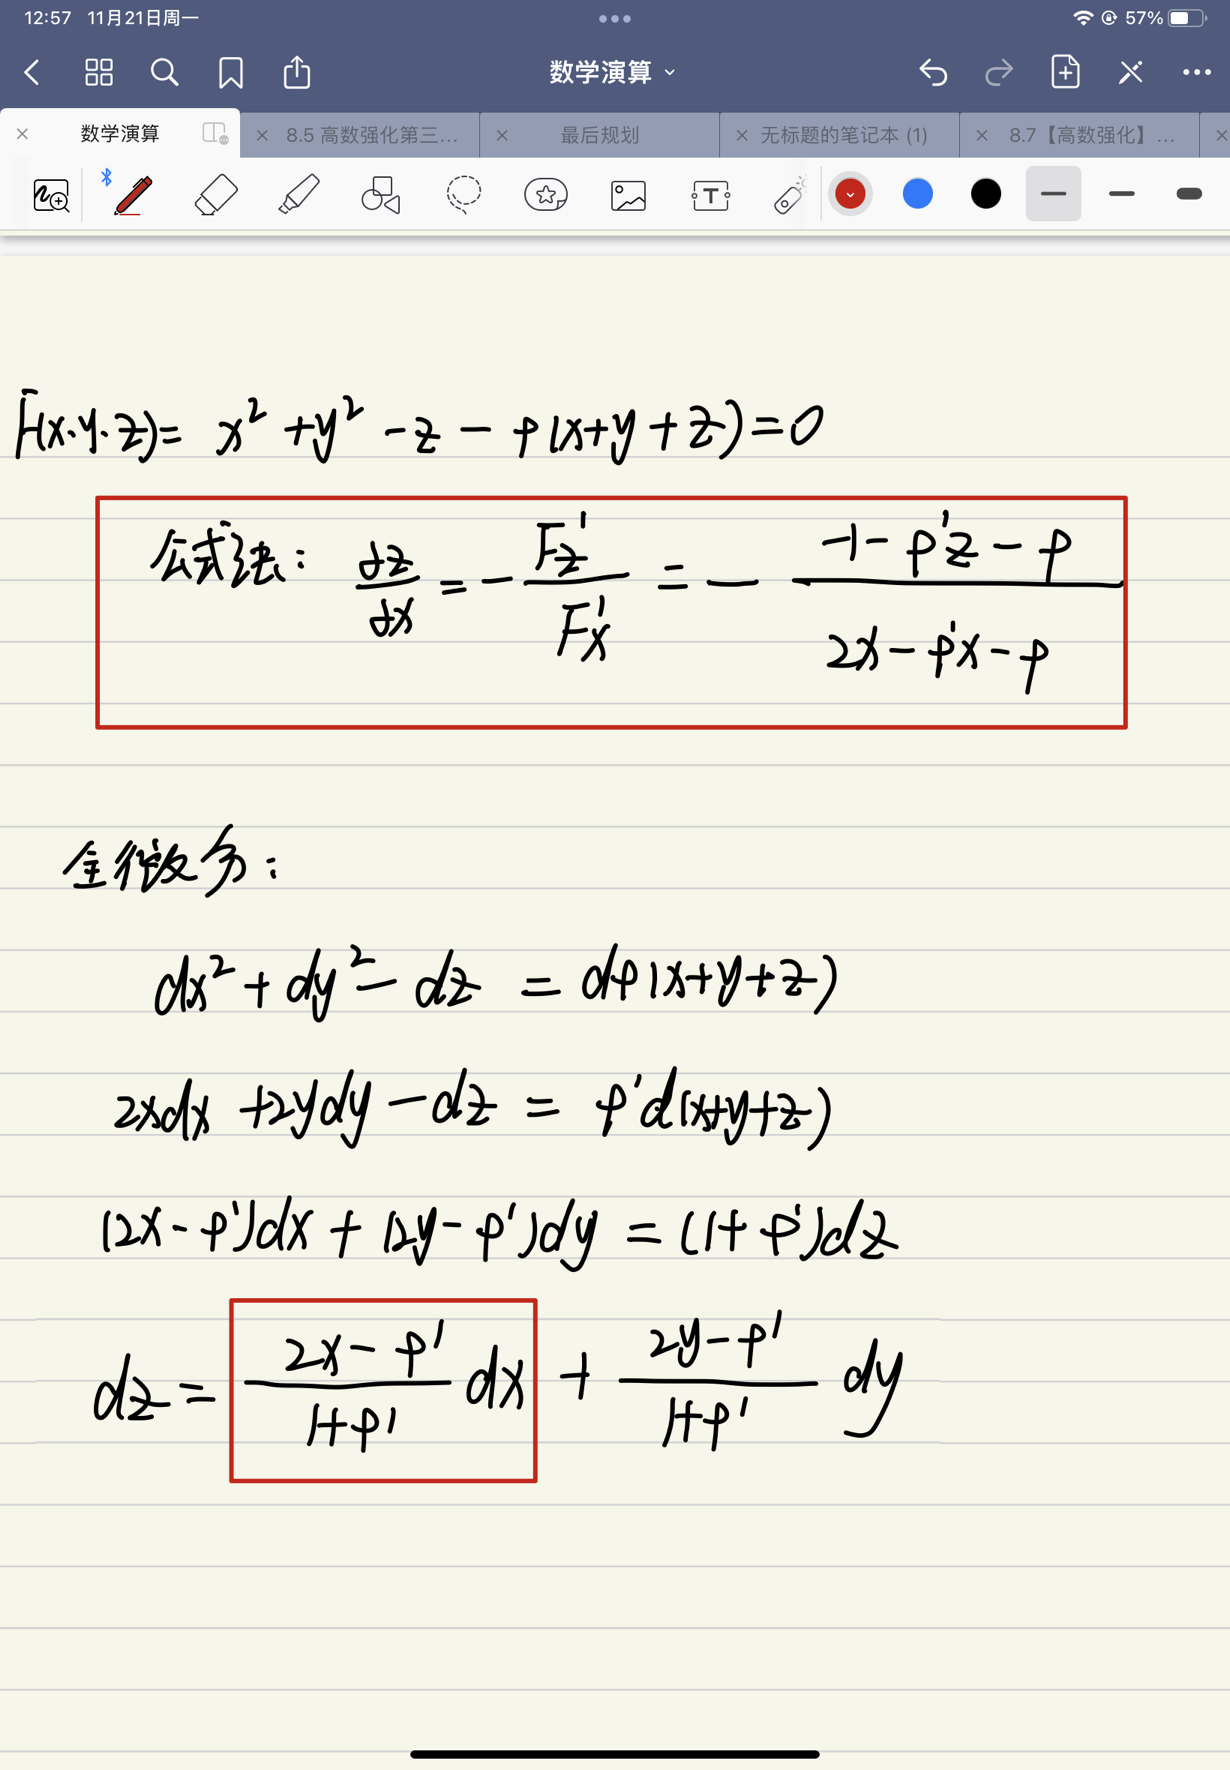 12:57 11月21日周一
57%
数学演算
数学演算
8.5 高数强化第三...
最后规划
无标题的笔记本 (1)
8.7【高数强化】...
T
F(x·y·z)= x² +y² -z - φ(x+y+z)=0
公式法: dz/dx = - Fz'/Fx' = - (-1-φ'z-φ)/(2x-φ'x-φ)
全微分:
dx²+dy²-dz = dφ(x+y+z)
2xdx +2ydy-dz = φ'd(x+y+z)
(2x-φ')dx+(2y-φ')dy=(1+φ')dz
dz= (2x-φ')/(1+φ') dx + (2y-φ')/(1+φ') dy